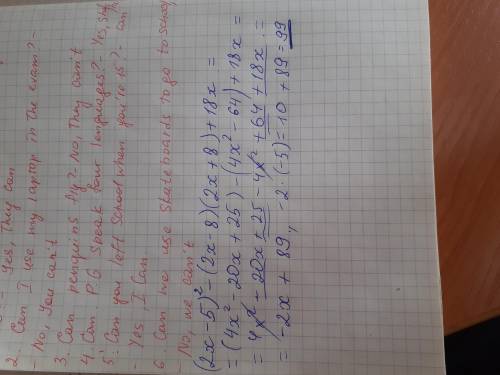 - Yes, They can
2. Can I use my laptop in the exam? -
- No, You can't
3. Can penguins fly? - No, They can't
4. Can P.G. Speak four languages? - Yes, She
5. Can you left School when you're 15? - can
- Yes, I Can
6. Can we use Skateboards to go to School
- No, we can't
(2x-5)² - (2x-8)(2x+8) + 18x =
= (4x² - 20x + 25) - (4x² - 64) + 18x =
= 4x² - 20x + 25 - 4x² + 64 + 18x =
= -2x + 89; -2·(-5) = 10 + 89 = 99